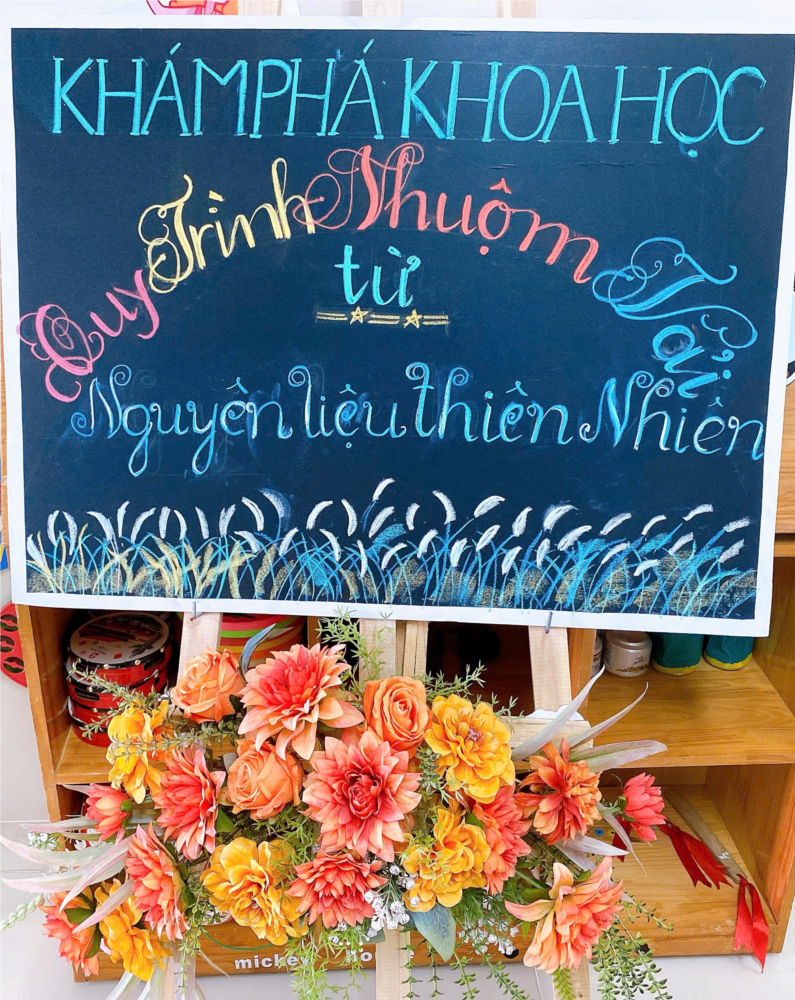 KHÁM PHÁ KHOA HỌC
Quy Trình Nhuộm Vải
từ
Nguyên liệu thiên Nhiên